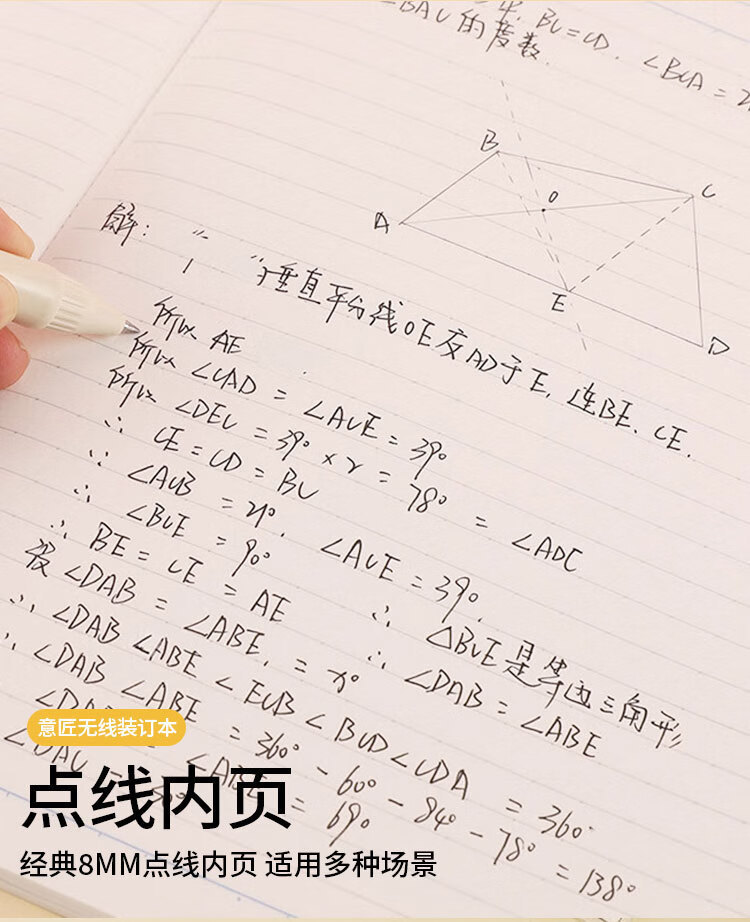 BC=CD.∠BCA=2
∠BAC的度数.
B
C
O
A
E
D
解:
作垂直平分线OE交AD于E,连BE、CE.
所以 AE
所以 ∠CAD = ∠ACE = 39°
所以 ∠DEC = 39° × 2 = 78° = ∠ADC
∴ CE = CD = BC
∵ ∠ACB = 21°, ∠ACE = 39°.
∴ ∠BCE = 90° ∴ △BCE是等边三角形
∴ BE = CE = AE ∴ ∠DAB = ∠ABE
设∠DAB = ∠ABE. = x°
∴ ∠DAB ∠ABE < ECB < BCD < CDA = 360°
∴ ∠DAB ∠ABE = 360° - 60° - 84° - 78° = 138°
= 69°
意匠无线装订本
点线内页
经典8MM点线内页 适用多种场景